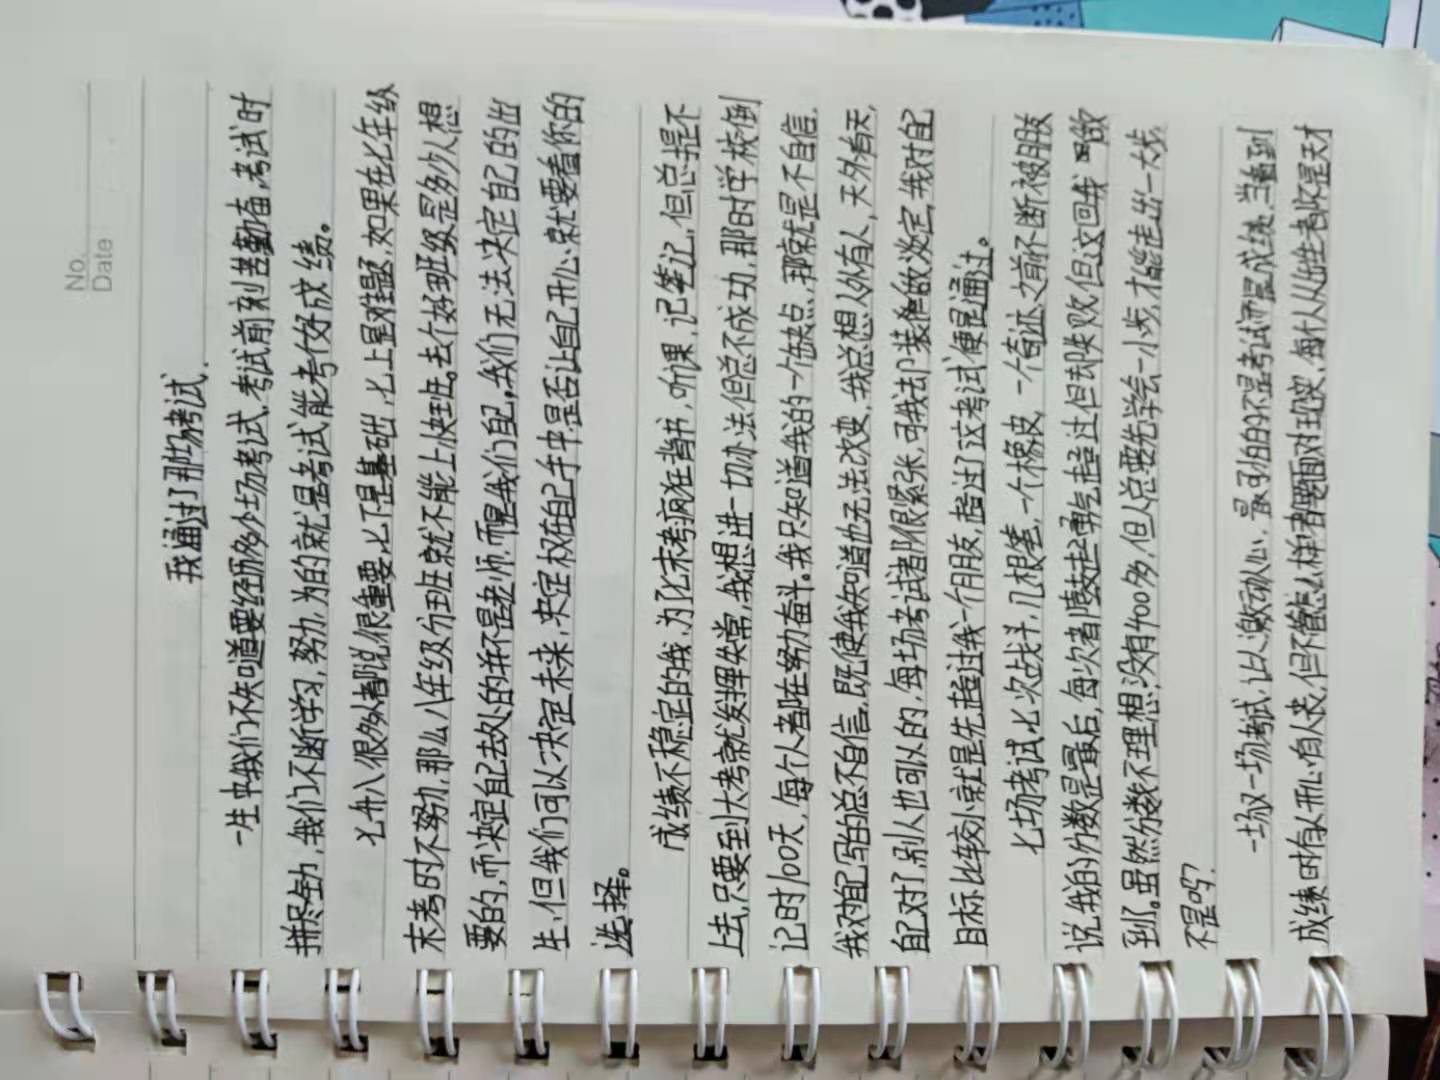 No.
Date
我通过了那场考试.
一生中我们不知道要经历多少场考试,考试前刻苦勤奋,考试时
拼尽全力,我们不断学习,努力,为的就是考试能考个好成绩。
七升八很多老师都说很重要,七下是基础,七上是难题,如果在七年级
末考时不努力,那么八年级分到班就不能上快班。去个好班级是多少人想
要的,而决定自己去处的并不是老师,而是我们自己,我们无法决定自己的出
生,但我们可以决定未来,决定权在自己手中,是否让自己开心就要看你的
选择。
成绩不稳定的我,为了七末考疯狂背书,听课,记笔记,但总是不
上去,只要到大考就发挥失常,我想进一切办法但总不成功,那时学校倒
记时100天,每个人都在努力奋斗。我只知道我的一个缺点,那就是不自信.
我对自己写的总不自信,既使我知道也无法改变,我总想人外有人,天外有天,
自己对了,别人也可以的,每场考试都很紧张,可我却装做淡定,我对自己
目标比较小就是先超过我一个朋友,超过了这考试便是通过。
七场考试七次战斗,几根笔,一个橡皮,一个奇迹,之前不断被朋友
说,我的分数是最后,每次都鼓起勇气超过但却失败,但这回我
到了。虽然分数不理想,没有400多,但人总要先学会一小步,才能走出一大步
不是吗?
一场又一场考试,让人激动人心,最可怕的不是考试而是成绩,当看到
成绩时有人开心有人哀,但不管怎么样都要面对现实,每个人从出生都不是天才